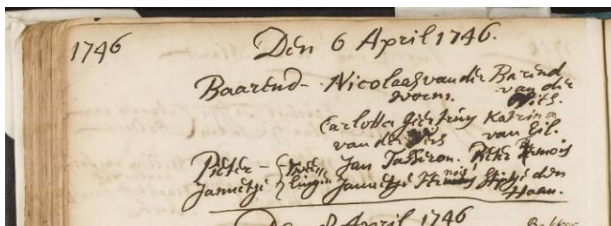 1746
Den 6 April 1746.
Baarend - Nicolaas van der Barend
worm. van der
Carlotta Geertruy Katrina
van der van Eil.
Pieter - Twee Jan Tasseron. Pieter
Jannetje lingen Jannetje den
Haan.
Den 8 April 1746
Bakker